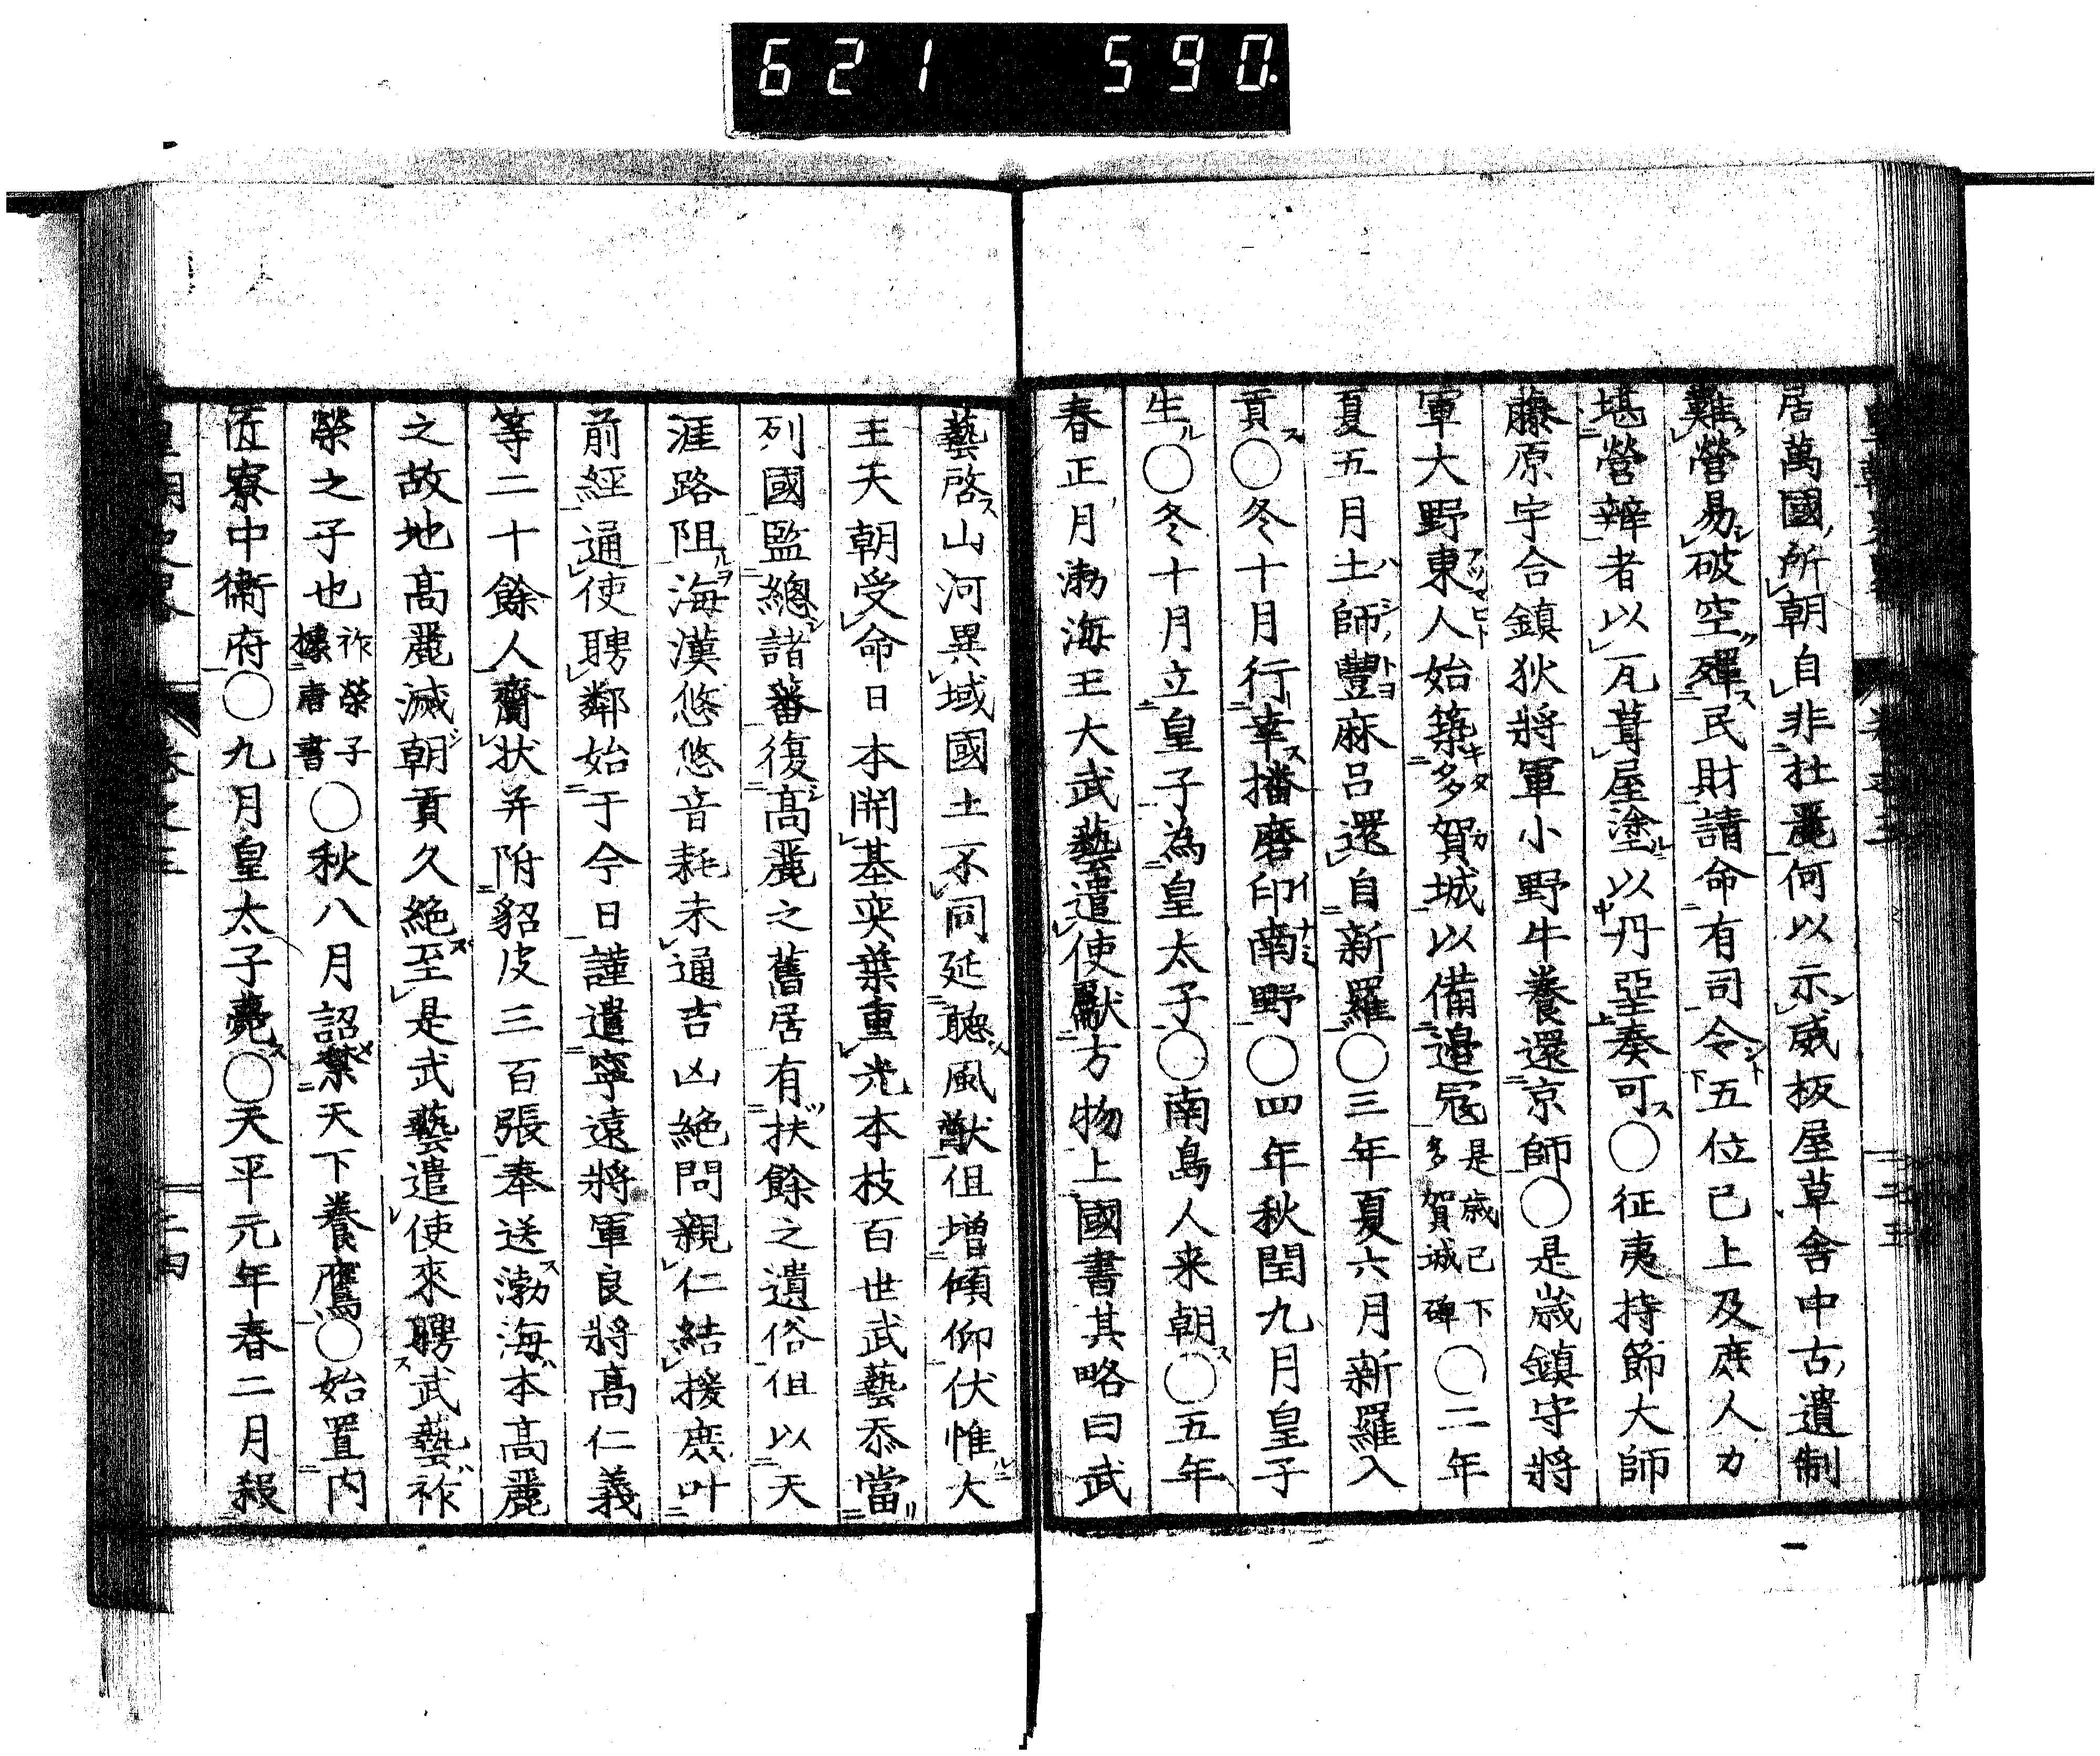 621 590
居萬國所朝自非壮麗何以示威板屋草舍中古遺制
難營易破空殫民財請命有司令五位已上及庶人力
堪營辦者以瓦葺屋塗以丹堊奏可○征夷持節大師
藤原宇合鎮狄將軍小野牛養還京師○是歳鎮守將
軍大野東人始築多賀城以備邉冦是歳已下多賀城碑○二年
夏五月土師豐麻呂還自新羅○三年夏六月新羅入
貢○冬十月行幸播磨印南野○四年秋閏九月皇子
生○冬十月立皇子為皇太子○南島人来朝○五年
春正月渤海王大武藝遣使獻方物上國書其略曰武
藝啓山河異域國土不同延聽風猷伹增傾仰伏惟大
王天朝受命日本開基奕葉重光本枝百世武藝忝當
列國監總諸蕃復髙麗之舊居有扶餘之遺俗伹以天
涯路阻海漢悠悠音耗未通吉凶絶問親仁結援庶叶
前經通使聘鄰始于今日謹遣寧遠將軍良將髙仁義
等二十餘人齎状并附貂皮三百張奉送渤海本髙麗
之故地髙麗滅朝貢久絶至是武藝遣使來聘武藝祚
榮之子也祚榮子據唐書○秋八月詔禁天下養鷹○始置内
匠寮中衞府○九月皇太子薨○天平元年春二月殺